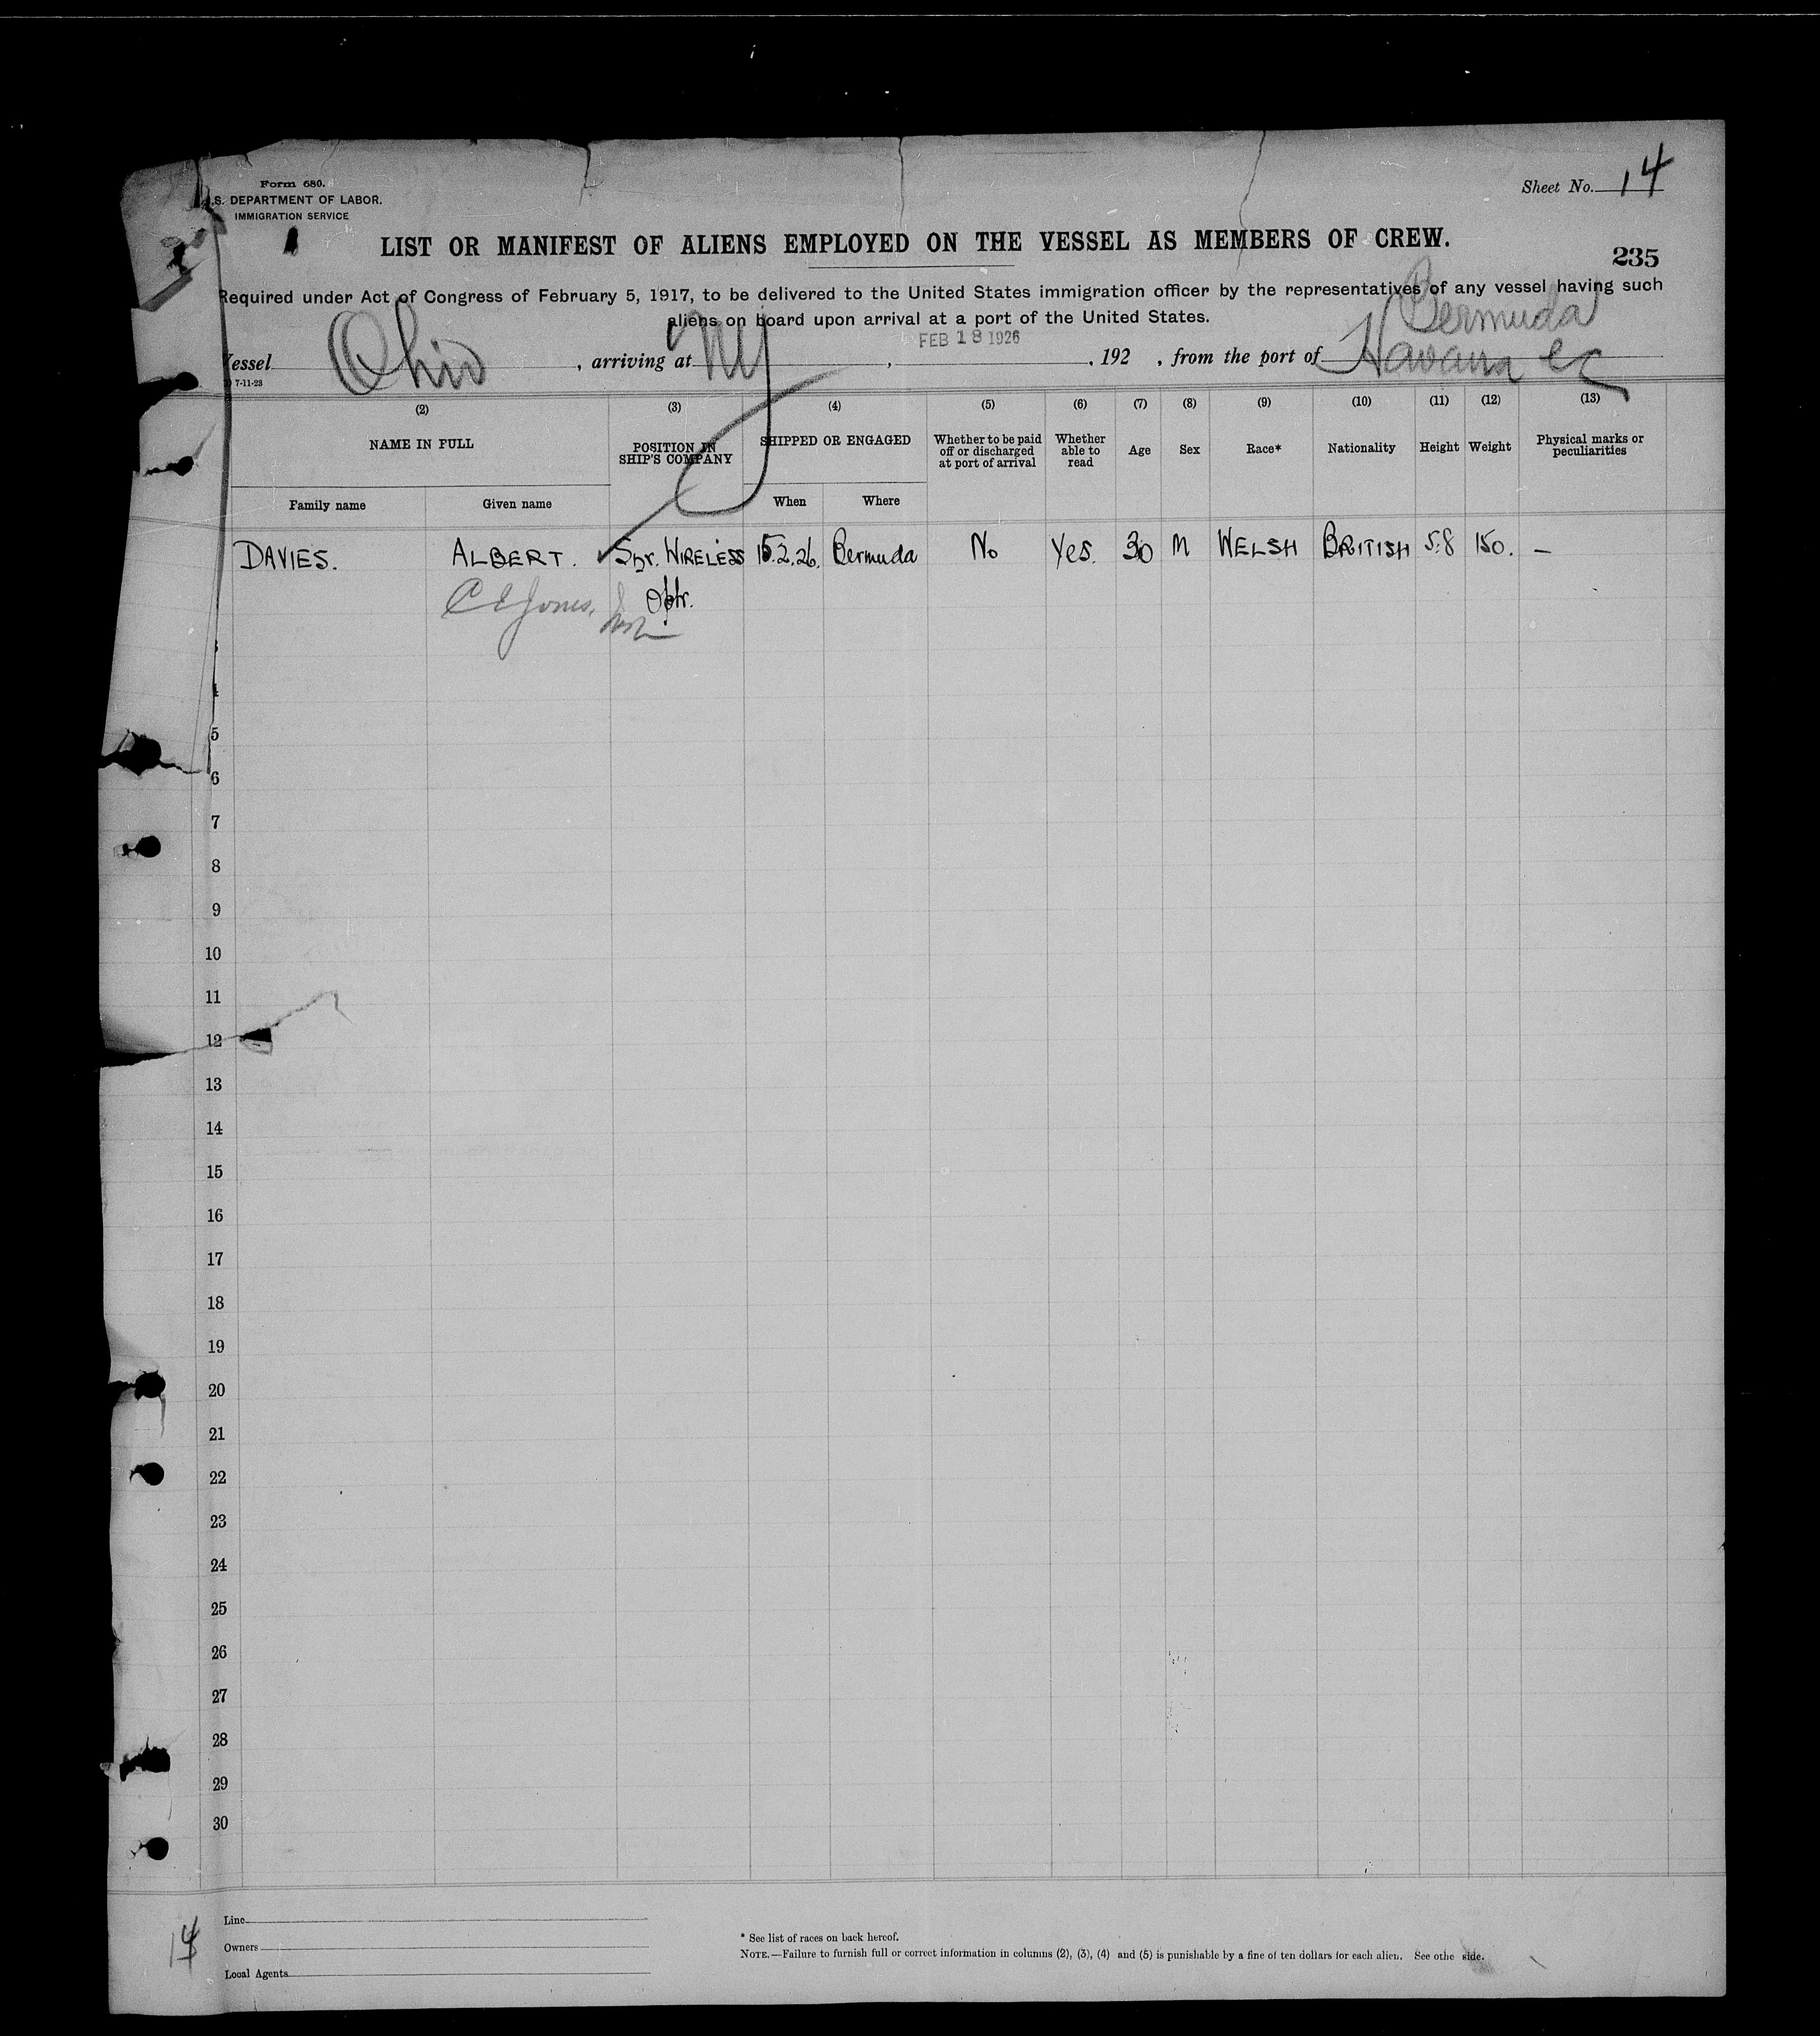 Form 680.
S. DEPARTMENT OF LABOR.
IMMIGRATION SERVICE
Sheet No. 14
LIST OR MANIFEST OF ALIENS EMPLOYED ON THE VESSEL AS MEMBERS OF CREW.
235
Required under Act of Congress of February 5, 1917, to be delivered to the United States immigration officer by the representatives of any vessel having such
aliens on board upon arrival at a port of the United States.
Bermuda
Vessel Ohio, arriving at NY, FEB 18 1926, 192 , from the port of Havana
7-11-23
(2) (3) (4) (5) (6) (7) (8) (9) (10) (11) (12) (13)
NAME IN FULL
Family name
Given name
POSITION IN
SHIP'S COMPANY
SHIPPED OR ENGAGED
When
Where
Whether to be paid
off or discharged
at port of arrival
Whether
able to
read
Age
Sex
Race*
Nationality
Height
Weight
Physical marks or
peculiarities
DAVIES. ALBERT. WIRELESS 15.2.26. Bermuda No Yes. 30 M WELSH BRITISH 5.8 150. –
C E Jones, Optr.
3
4
5
6
7
8
9
10
11
12
13
14
15
16
17
18
19
20
21
22
23
24
25
26
27
28
29
30
14
Line
Owners
Local Agents
* See list of races on back hereof.
NOTE.—Failure to furnish full or correct information in columns (2), (3), (4) and (5) is punishable by a fine of ten dollars for each alien. See othe side.